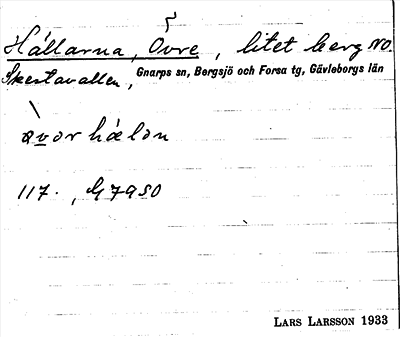 Hållarna, Övre, litet berg NO.
Skestavallen, Gnarps sn, Bergsjö och Forsa tg, Gävleborgs län
117. , G7980
LARS LARSSON 1933